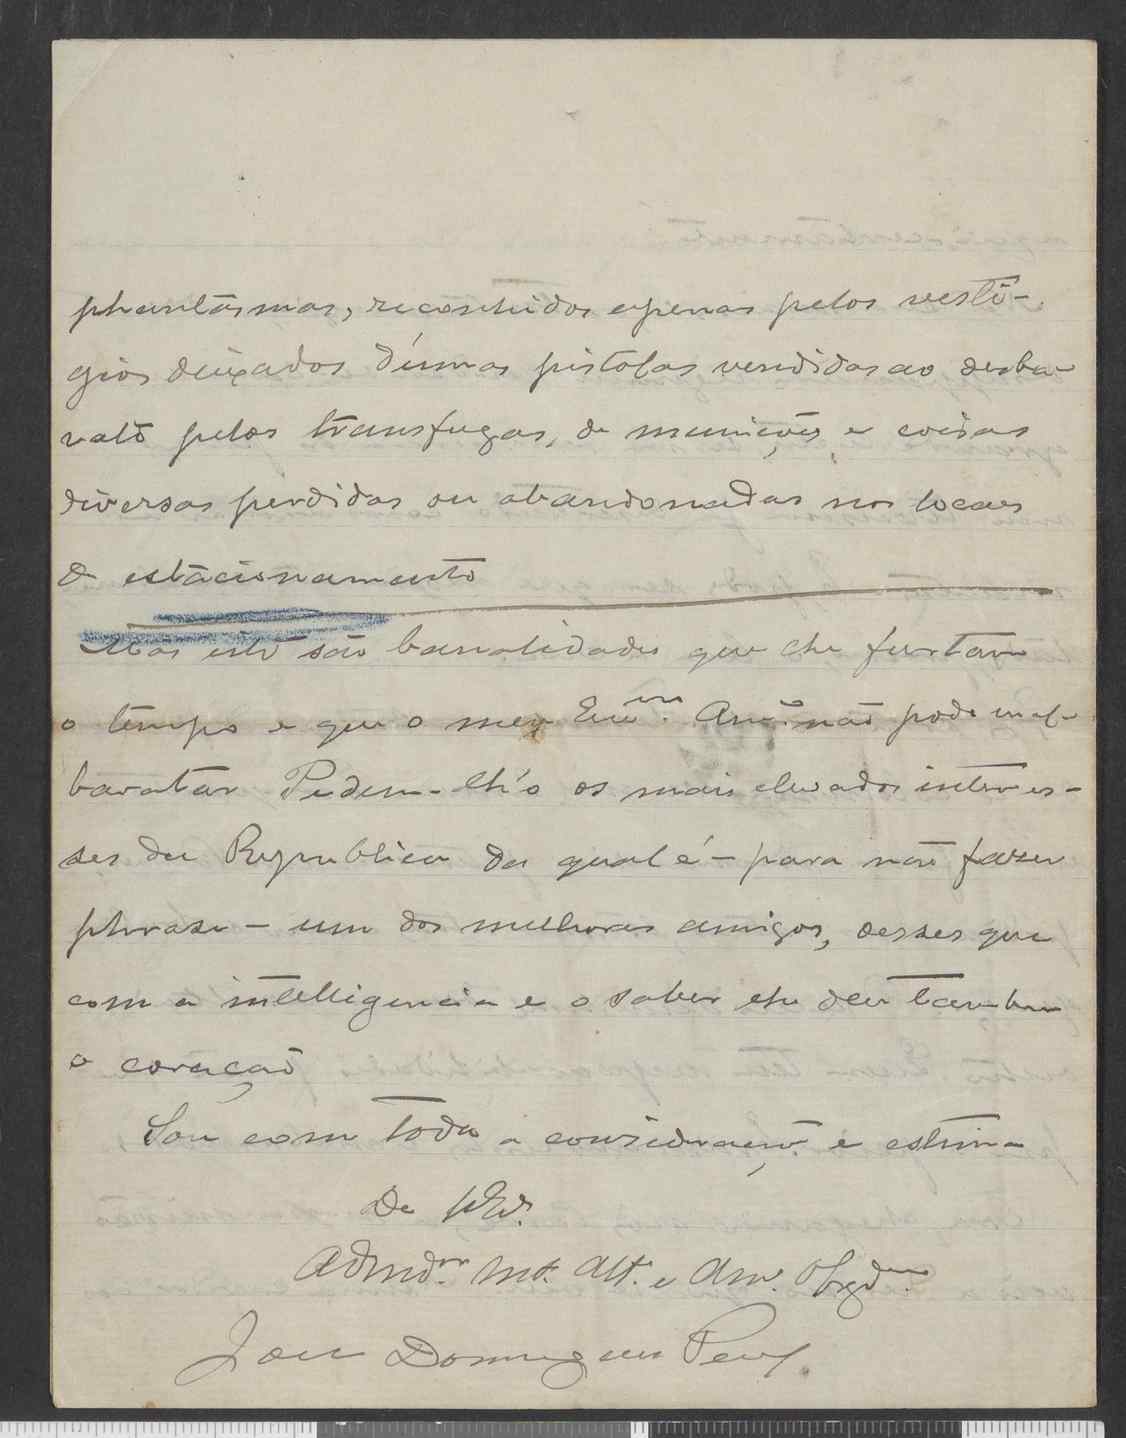 phantasmas, reconhecidos apenas pelos vesti-
gios deixados d'umas pistolas vendidas ao desba-
rato pelos transfugas, de munições e coisas
diversas perdidas ou abandonadas nos locaes
de estacionamento
Mas isto são banalidades que lhe furtam
o tempo e que o meu Exmo. Amo. não pode mal-
baratar Pedem-lh'o os mais elevados interes-
ses da Republica da qual é - para não fazer
phrase - um dos melhores amigos, desses que
com a intelligencia e o saber lhe deu tambem
o coração
Sou com toda a consideração e estima
De VExa.
Admdor. Mt. Att. e Amo. Obrgdmo.
José Domingues Peres